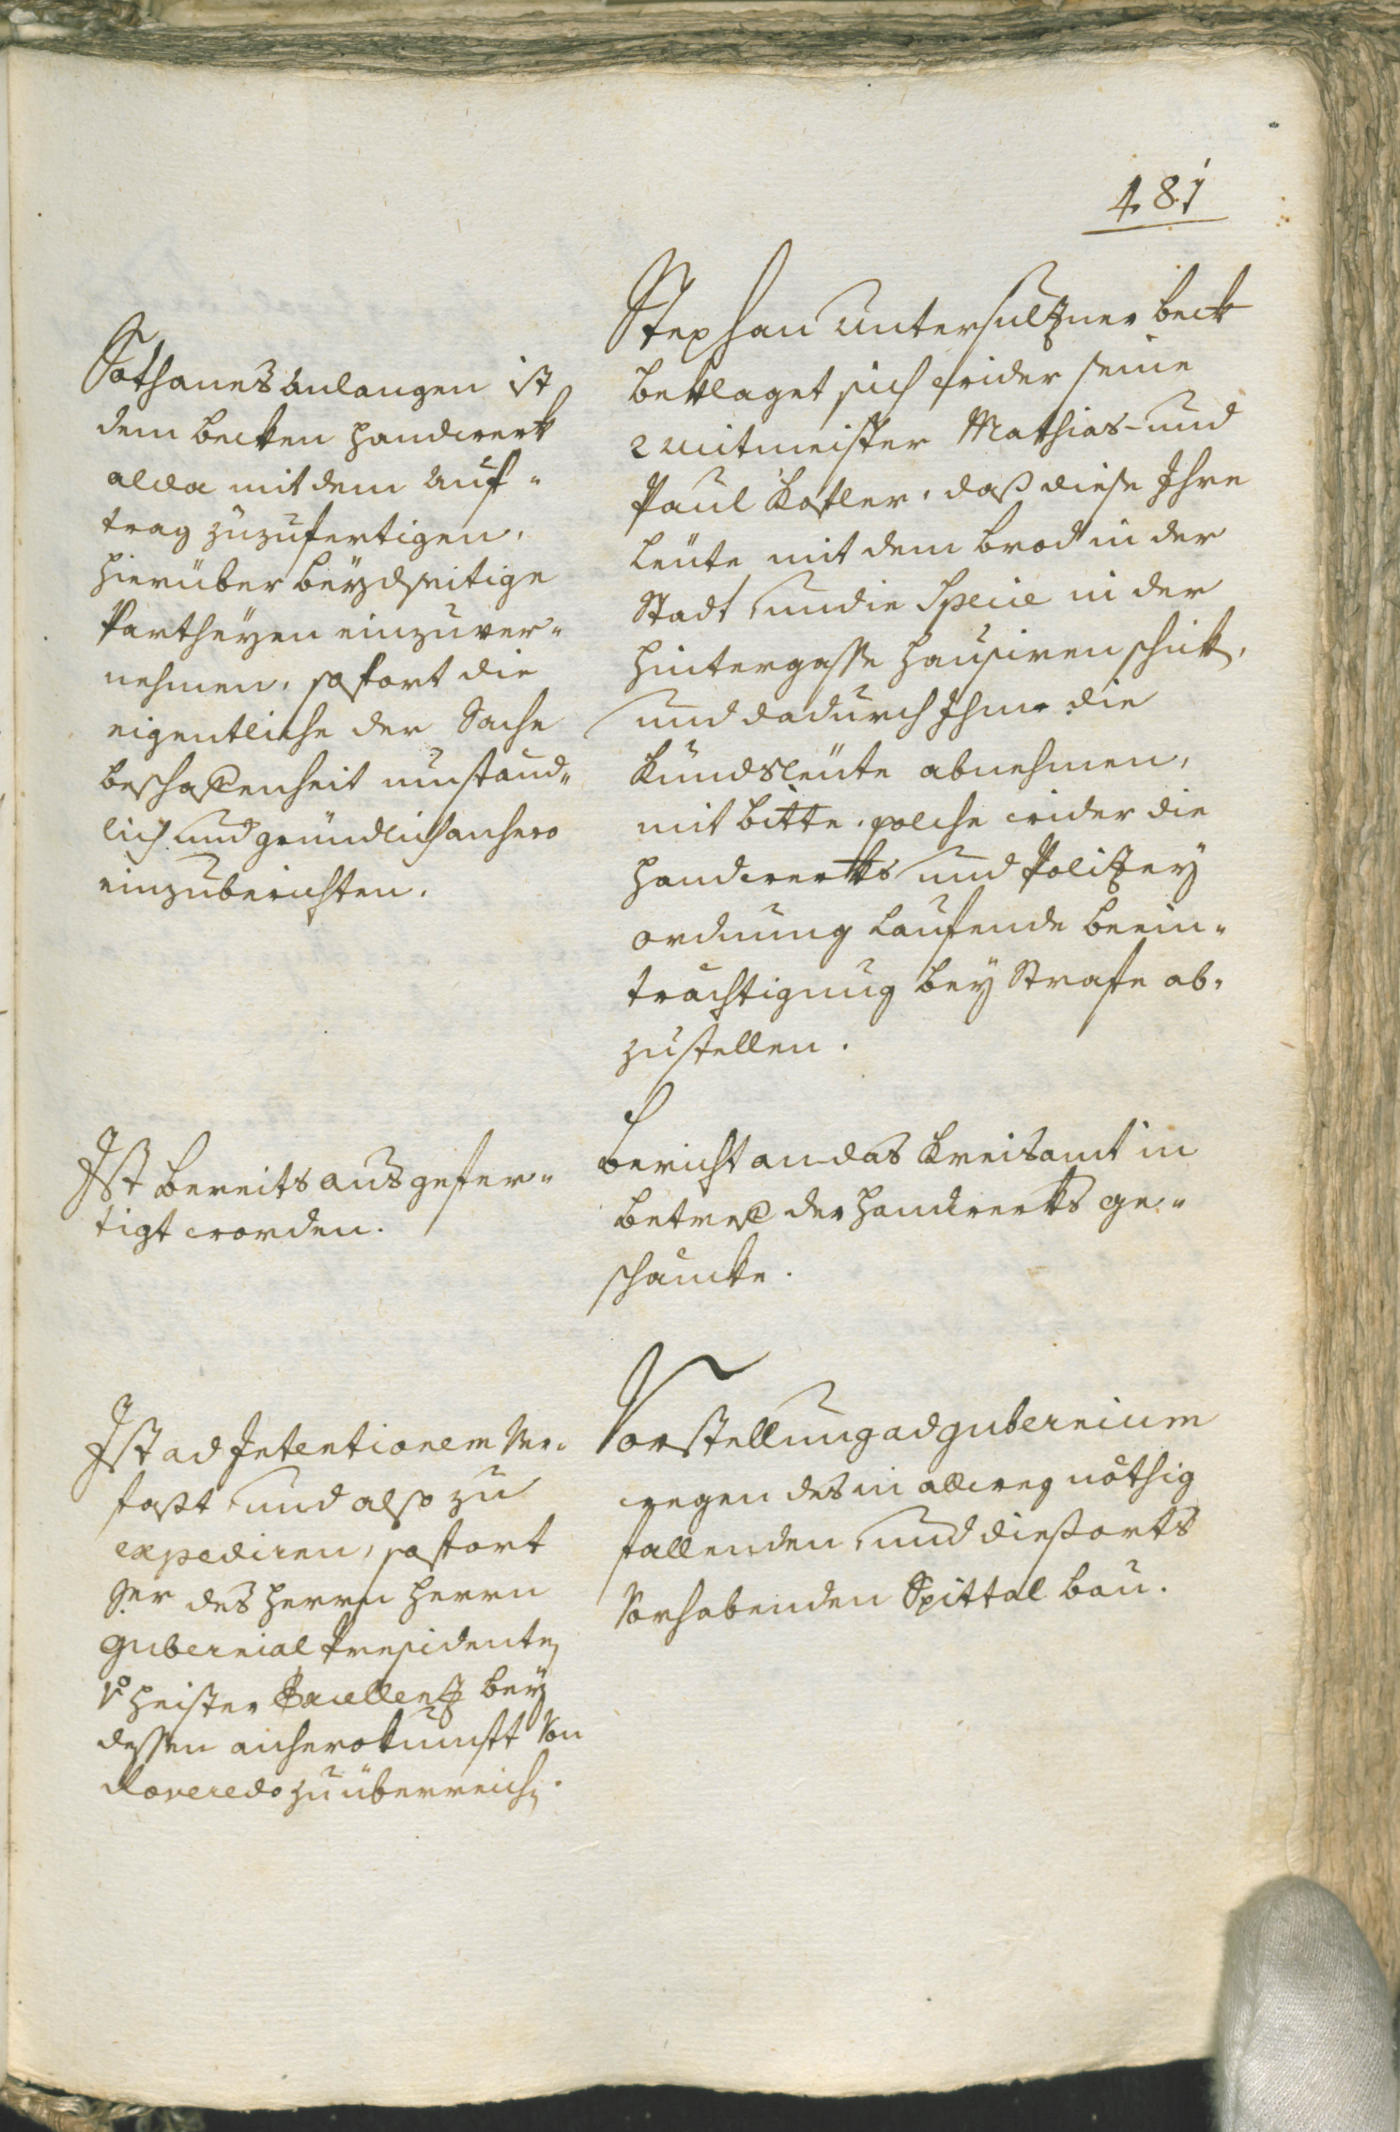 481
Stephan Untersulzner beck
beklaget sich wider seine
2 mitmeister Mathias- und
Paul Kofler, daß diese Ihre
Leüte mit dem brod in der
Stadt und in Specie in der
hintergasse hausiren schik,
und dadurch Ihme die
Kundsleüte abnehmen,
mit bitte, solche wider die
handwerks und Polizey
ordnung laufende beein-
trächtigung bey Strafe ab-
zustellen.
Sothanes anlangen ist
dem becken handwerk
alda mit dem auf-
trag zuzufertigen,
hierüber beydseitige
Partheyen einzuver-
nehmen, sofort die
eigentliche der Sache
beschaffenheit umständ-
lich und gründlich anhero
einzuberichten.
bericht an das Kreisamt in
betreff der handwerks ge-
schäncke.
Ist bereits ausgefer-
tigt worden.
Vorstellung ad gubernium
wegen des in allweg nöthig
fallenden und diesorts
Vorhabenden Spittal bau.
Ist ad Intentionem Ver-
fasst und also zu
expediren, sofort
Sr des herrn herrn
Gubernial Presidenten
v. heister Excellenz bey
dessen anherokunft Von
Roveredo zu überreichen.